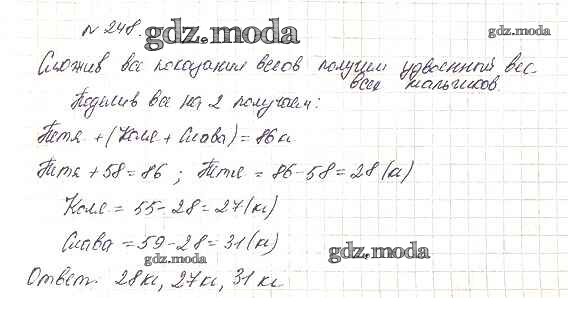 № 248. gdz.moda gdz.moda
Сложив все показания весов получим удвоенный вес
всех мальчиков.
Поделив все на 2 получаем:
Петя + (Коля + Слава) = 86 кг
Петя + 58 = 86 ; Петя = 86 - 58 = 28 (кг)
Коля = 55 - 28 = 27 (кг)
Слава = 59 - 28 = 31 (кг)
gdz.moda gdz.moda
Ответ: 28 кг, 27 кг, 31 кг